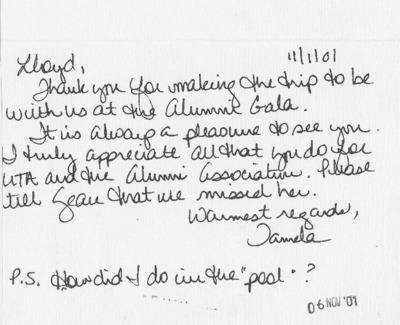 Lloyd,
11/1/01
Thank you for making the trip to be
with us at the Alumni Gala.
It is always a pleasure to see you.
I truly appreciate all that you do for
UTA and the Alumni Association. Please
tell Jean that we missed her.
Warmest regards,
Pamela
P.S. How did I do in the "pool"?
06 NOV '01